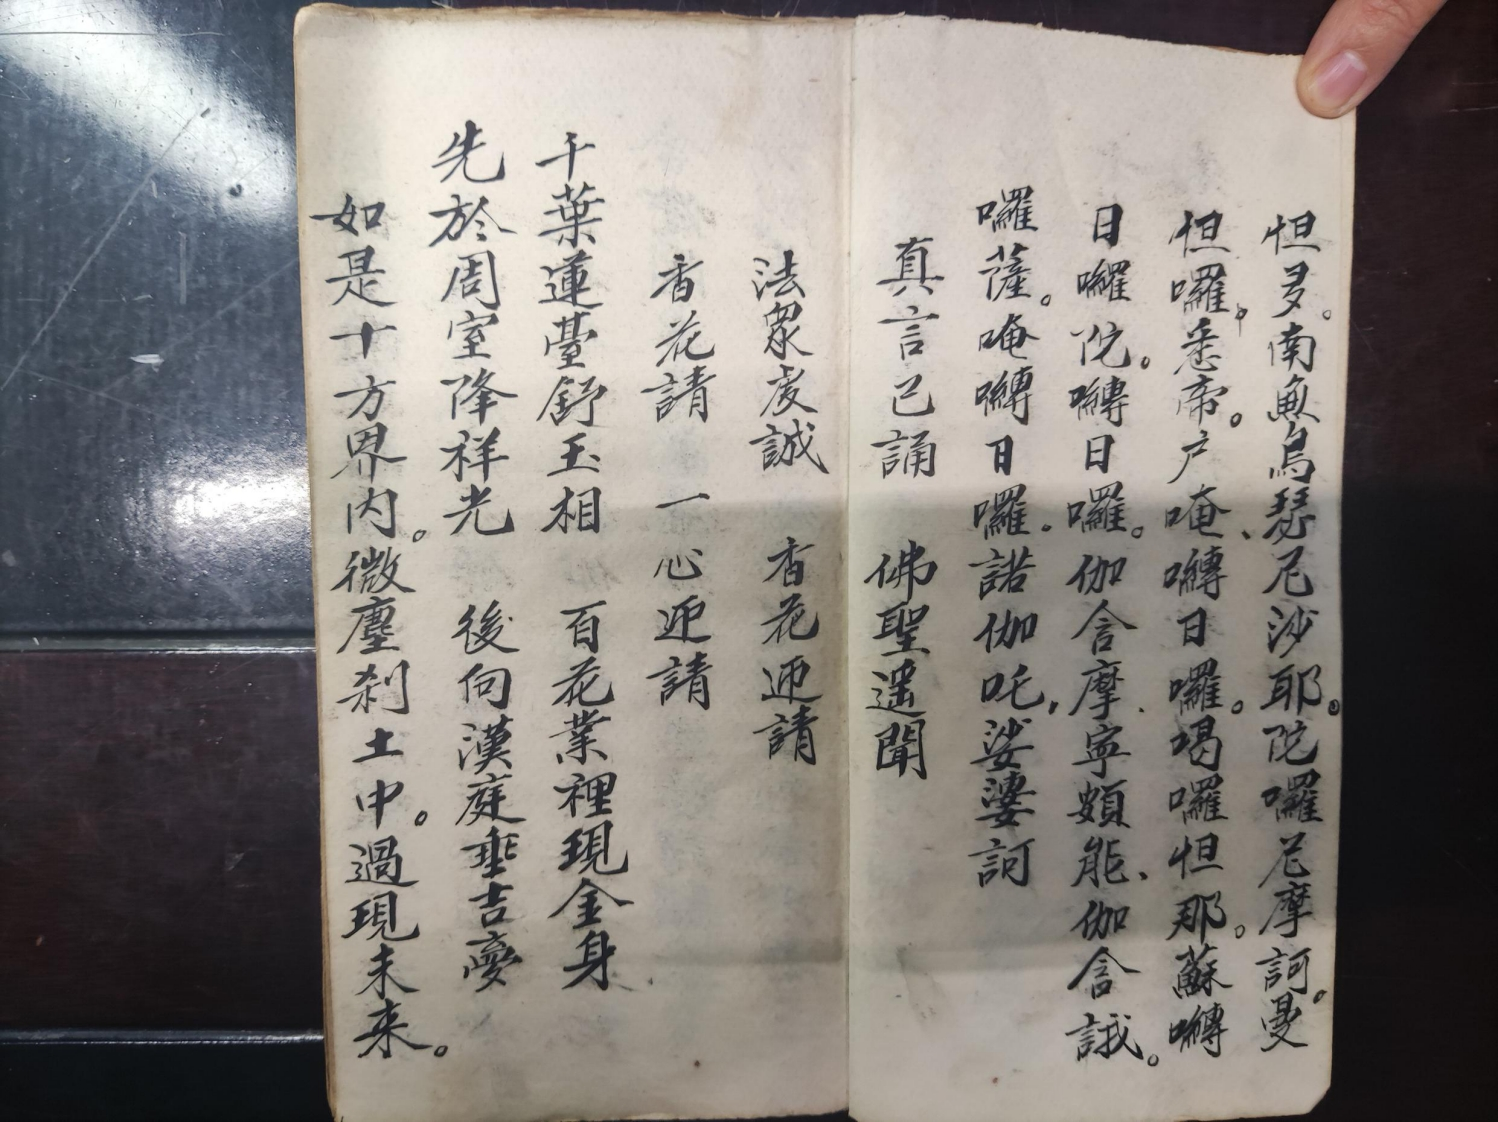 怛多。南無烏瑟尼沙耶。陀囉尼摩訶。曼
怛囉，悉帝。户唵、嚩日囉。曷囉怛那。蘇嚩
日囉陀。嚩日囉。伽含摩.寧頗能、伽含誐。
囉薩。唵嚩日囉.諾伽吒，娑婆訶
真言已誦　佛聖遥聞
法眾虔誠　香花迎請
香花請　一心迎請
千葉蓮臺舒玉相　百花業裡現金身
先於周室降祥光　後向漢庭垂吉夢
如是十方界内。微塵刹土中。過現未来。